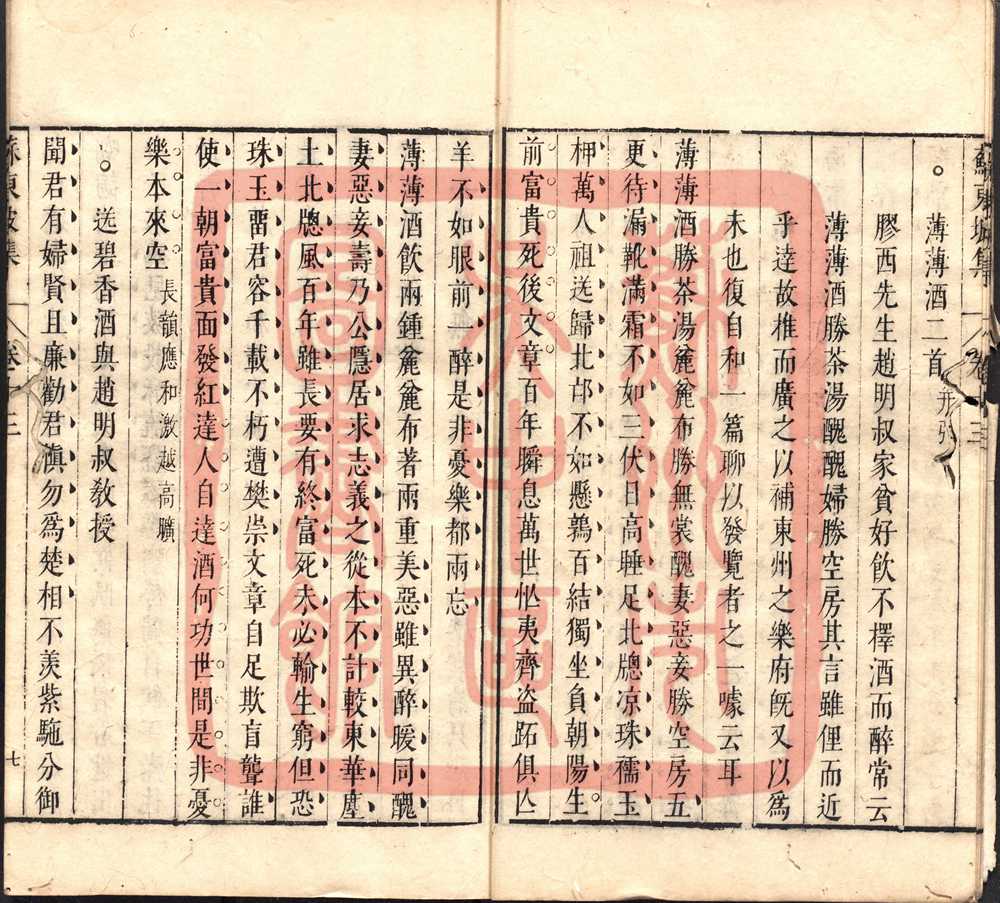 薄薄酒二首并引
膠西先生趙明叔家貧好飲不擇酒而醉常云
薄薄酒勝茶湯醜醜婦勝空房其言雖俚而近
乎達故推而廣之以補東州之樂府旣又以爲
未也復自和一篇聊以發覽者之一噱云耳
薄薄酒勝茶湯麄麄布勝無裳醜妻惡妾勝空房五
更待漏靴滿霜不如三伏日高睡足北牕凉珠襦玉
柙萬人祖送歸北邙不如懸鶉百結獨坐負朝陽生
前富貴死後文章百年瞬息萬世忙夷齊盗跖俱亾
羊不如眼前一醉是非憂樂都兩忘
薄薄酒飲兩鍾麄麄布著兩重美惡雖異醉暖同醜
妻惡妾壽乃公隱居求志義之從本不計較東華塵
土北牕風百年雖長要有終富死未必輸生窮但恐
珠玉畱君容千載不朽遭樊崇文章自足欺盲聾誰
使一朝富貴面發紅達人自達酒何功世間是非憂
樂本來空 長韻應和激越高曠
送碧香酒與趙明叔敎授
聞君有婦賢且廉勸君滇勿爲楚相不羡紫駞分御
蘇東坡集 卷之三 七